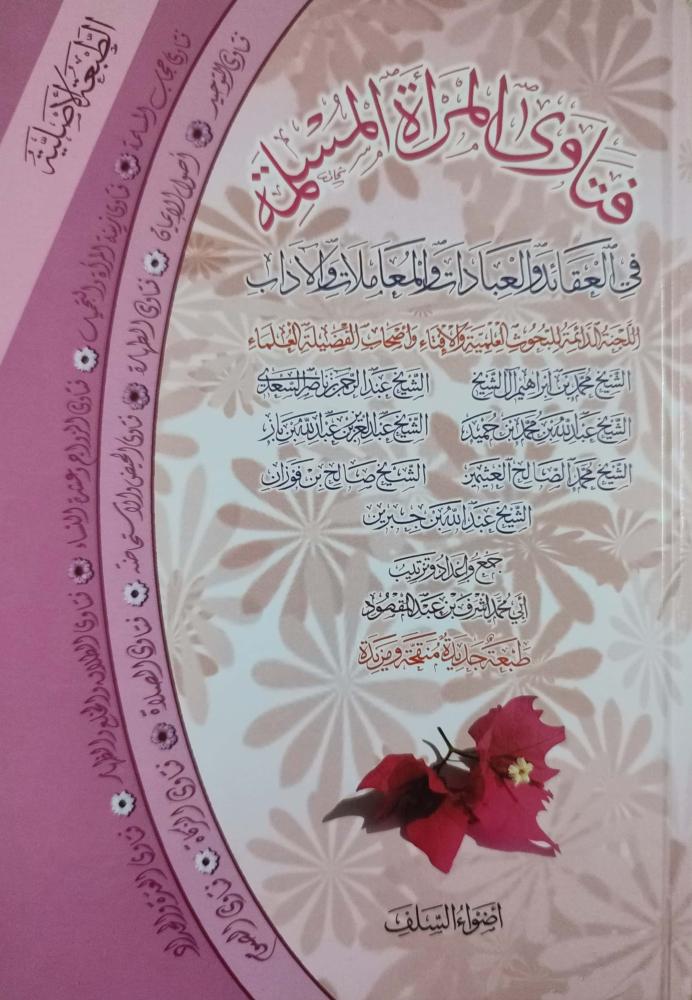 الطبعة الأصلية
فتاوى المرأة المسلمة
في العقائد والعبادات والمعاملات والآداب
اللجنة الدائمة للبحوث العلمية والإفتاء وأصحاب الفضيلة العلماء
الشيخ محمد بن إبراهيم آل الشيخ الشيخ عبد الرحمن بن ناصر السعدي
الشيخ عبد الله بن محمد ابن حميد الشيخ عبد العزيز بن عبد الله بن باز
الشيخ محمد الصالح العثيمين الشيخ صالح بن فوزان
الشيخ عبد الله بن جبرين
جمع وإعداد وترتيب
أبي محمد أشرف بن عبد المقصود
طبعة جديدة منقحة ومزيدة
أضواء السلف
فتاوى التوحيد
أصول الإيمان
فتاوى الطهارة
فتاوى الحيض والاستحاضة
فتاوى الصلاة
فتاوى الزكاة
فتاوى الصيام
فتاوى حجاب المسلمة
فتاوى زينة المرأة والتجميل
فتاوى الزواج وعشرة النساء
فتاوى الطلاق والخلع والظهار